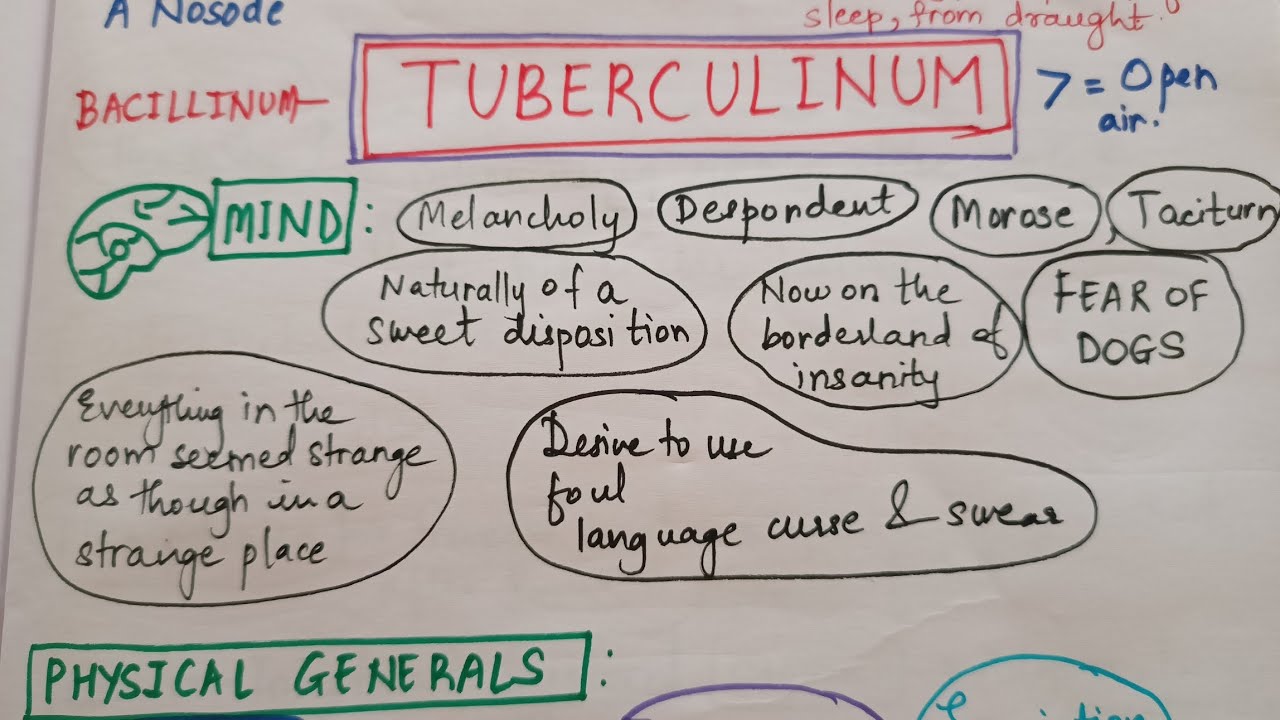 A Nosode
sleep, from draught.
BACILLINUM
TUBERCULINUM
> = Open
air.
MIND :
Melancholy
Despondent
Morose ,
Taciturn
Naturally of a
sweet disposition
Now on the
borderland of
insanity
FEAR OF
DOGS
Everything in the
room seemed strange
as though in a
strange place
Desire to use
foul
language curse & swear
PHYSICAL GENERALS :